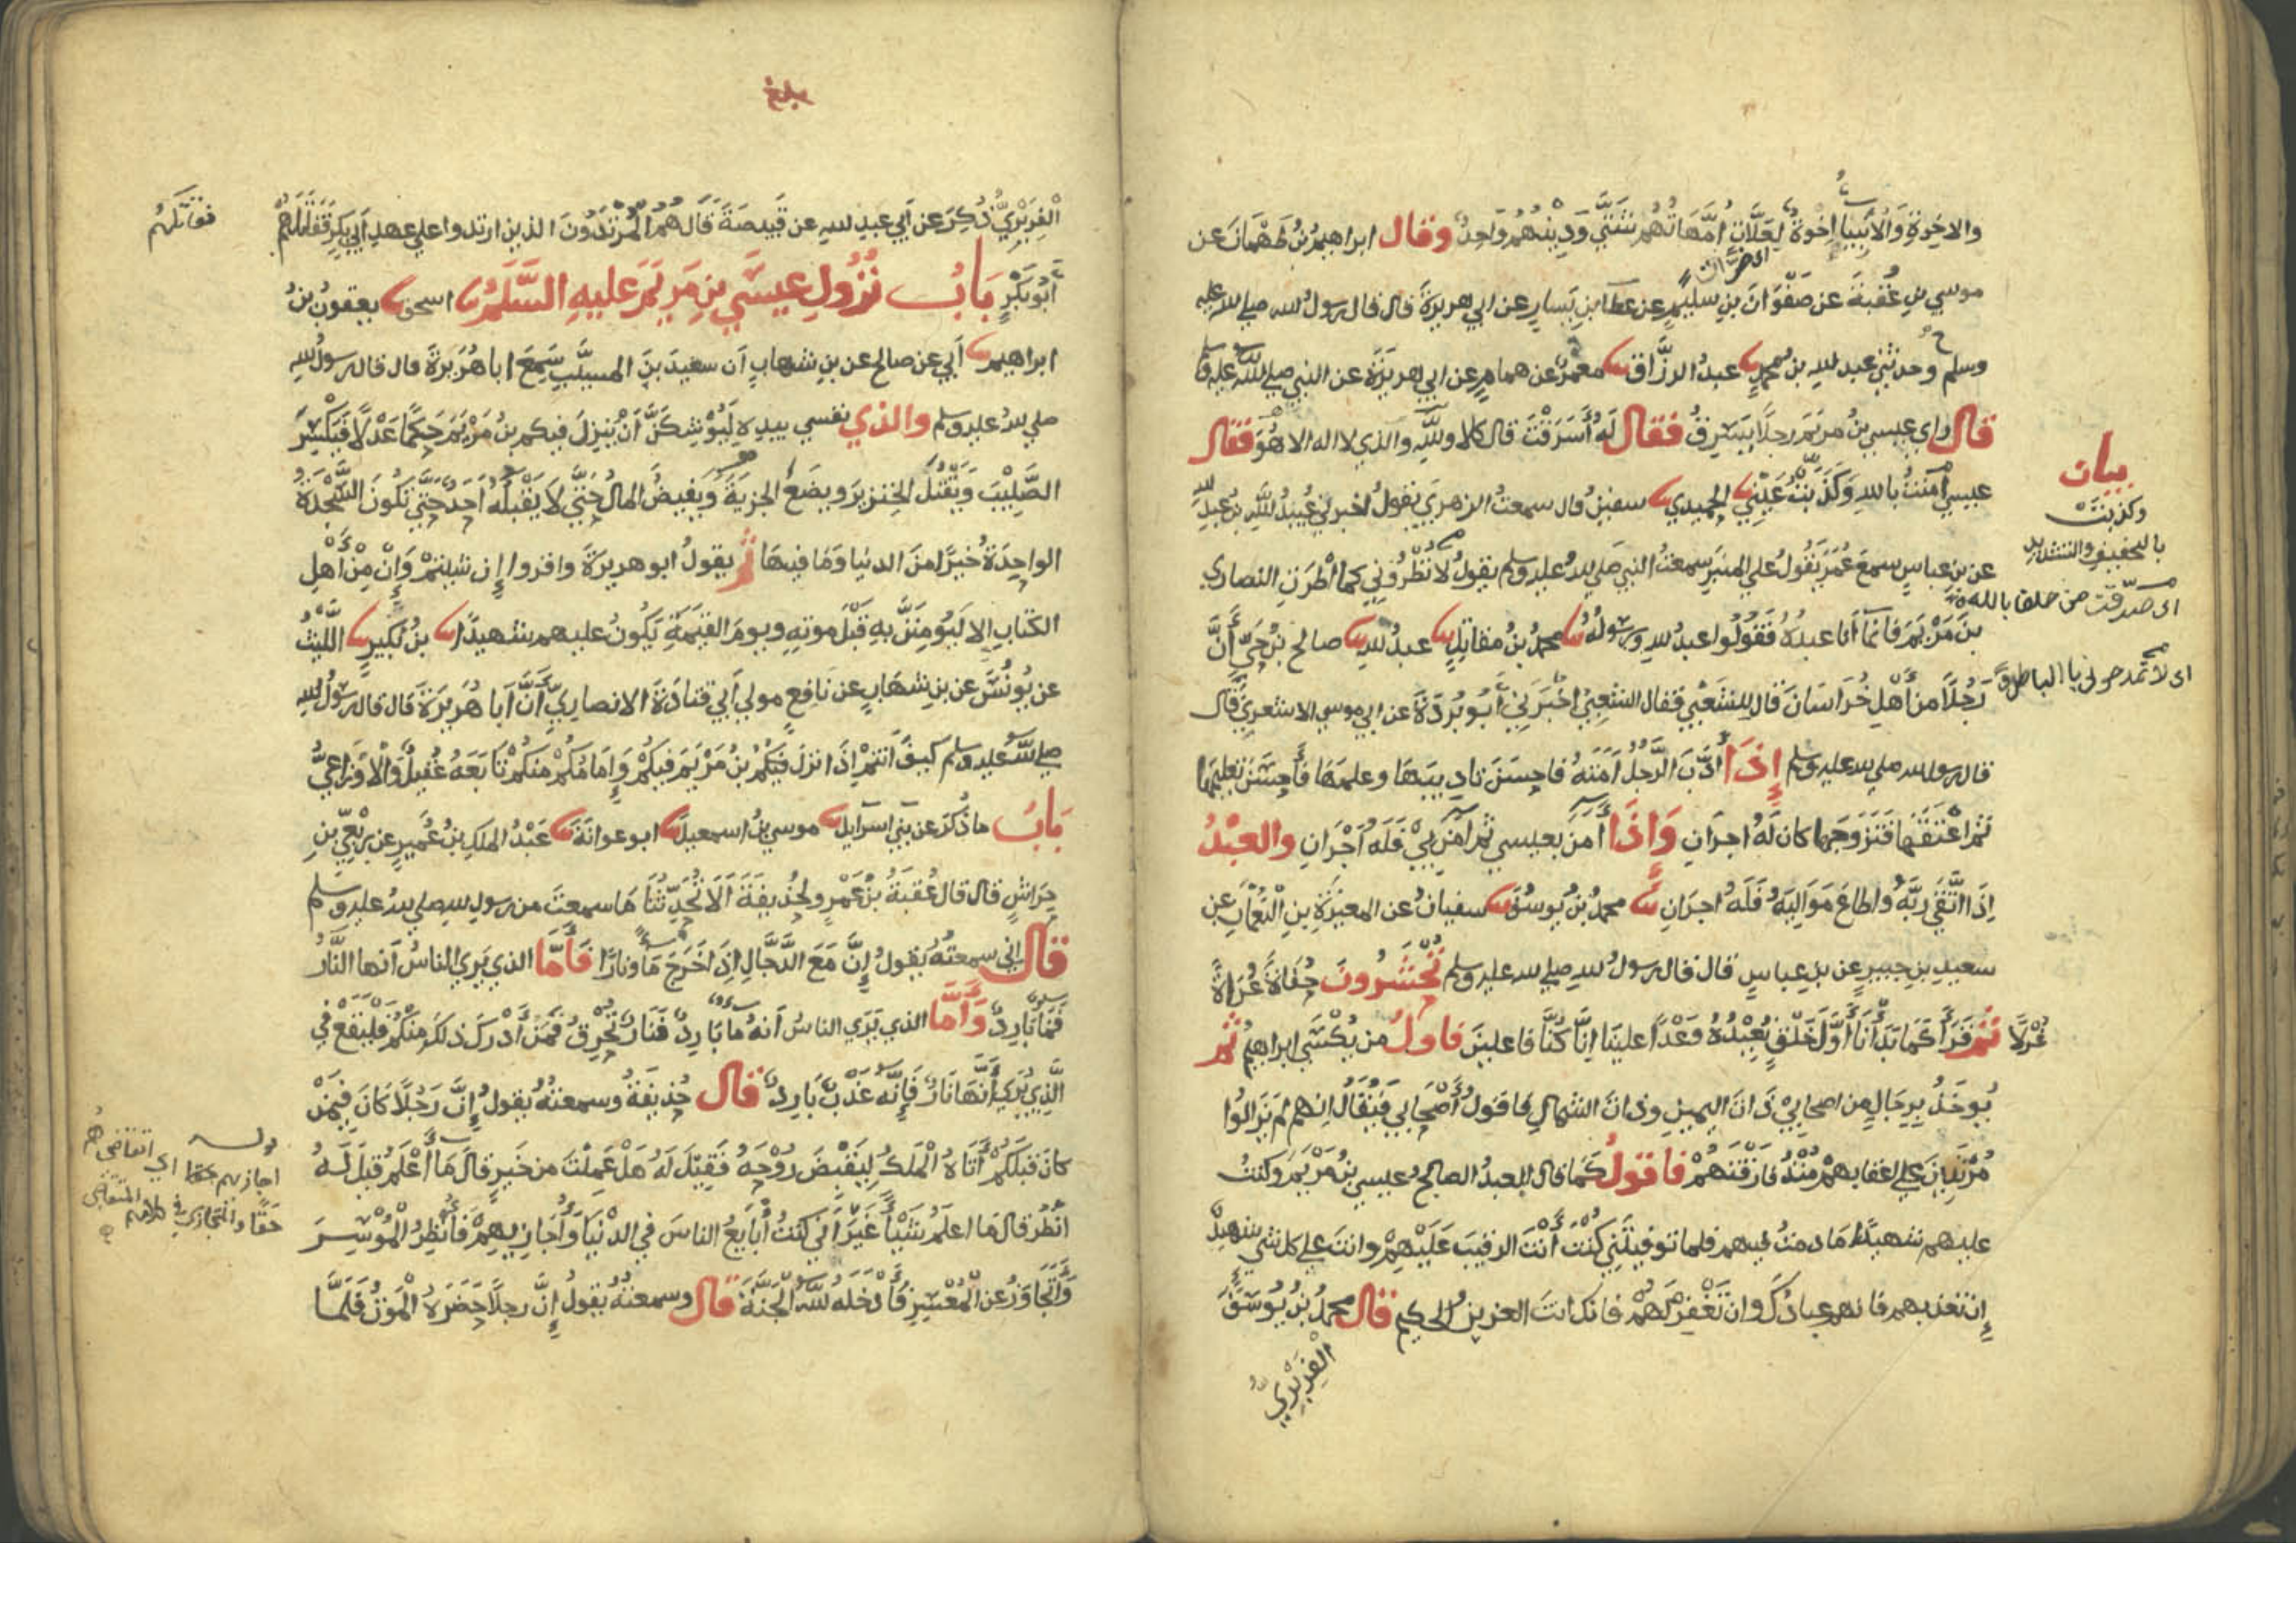 والاخرة والأنبيا إخوة لعلات أمهاتهم شتى ودينهم واحد وقال ابراهيم بن طهمان عن
موسي بن عقبة عن صفوان بن سليم عن عطا بن يسار عن ابي هريرة قال قال رسول الله صلي الله عليه
وسلم ح وحدثني عبد الله بن محمد عبد الرزاق معمر عن همام عن ابي هريرة عن النبي صلي الله عليه
قال راي عيسي بن مريم رجلا يسرق فقال له أسرقت قال كلا والله والذي لا اله الا هو فقال
عيسي آمنت بالله وكذبت عيني الحميدي سفين قال سمعت الزهري يقول اخبرني عبيد الله بن عبد الله
عن بن عباس سمع عمر يقول علي المنبر سمعت النبي صلي الله عليه وسلم يقول لا تطروني كما أطرت النصاري
بن مريم فانما أنا عبده فقولوا عبد الله ورسوله محمد بن مقاتل عبد الله صالح بن حي أن
رجلا من أهل خراسان قال للشعبي فقال الشعبي اخبرني أبو بردة عن ابي موسي الاشعري قال
قال رسول الله صلي الله عليه وسلم إذا أدب الرجل أمته فاحسن تاديبها وعلمها فأحسن تعليمها
ثم اعتقها فتزوجها كان له اجران وإذا أمن بعيسي ثم آمن بي فله أجران والعبد
إذا اتقي ربه واطاع مواليه فله اجران محمد بن يوسف سفيان عن المغيرة بن النعمان عن
سعيد بن جبير عن بن عباس قال قال رسول الله صلي الله عليه وسلم تحشرون حفاة عراة
غرلا ثم قرأ كما بدأنا أول خلق نعيده وعدا علينا انا كنا فاعلين فاول من يكسي ابراهيم ثم
يوخذ برجال من اصحابي ذات اليمين وذات الشمال فاقول أصحابي فيقال انهم لم يزالوا
مرتدين علي اعقابهم منذ فارقتهم فاقول كما قال العبد الصالح عيسي بن مريم وكنت
عليهم شهيدا ما دمت فيهم فلما توفيتني كنت أنت الرقيب عليهم وانت علي كل شي شهيد
إن تعذبهم فانهم عبادك وان تغفر لهم فانك انت العزيز الحكيم قال محمد بن يوسف
الفربري
بيان
وكذبت
بالتخفيف والتشديد
اي صدقت من حلف بالله
اي لا تمدحوني بالباطل
بلغ
الفربري ذكر عن أبي عبد الله عن قبيصة قال هم المرتدون الذين ارتدوا علي عهد أبي بكر فقاتلهم
أبو بكر باب نزول عيسي بن مريم عليه السلام اسحق يعقوب بن
ابراهيم أبي عن صالح عن بن شهاب أن سعيد بن المسيب سمع ابا هريرة قال قال رسول الله
صلي الله عليه وسلم والذي نفسي بيده ليوشكن أن ينزل فيكم بن مريم حكما عدلا فيكسر
الصليب ويقتل الخنزير ويضع الجزية ويفيض المال حتي لا يقبله أحد حتي تكون السجدة
الواحدة خيرا من الدنيا وما فيها ثم يقول ابو هريرة واقروا إن شيئتم وإن من أهل
الكتاب الا ليؤمنن به قبل موته ويوم القيمة يكون عليهم شهيدا بن بكير الليث
عن يونس عن بن شهاب عن نافع مولي أبي قتادة الانصاري أن أبا هريرة قال قال رسول الله
صلي الله عليه وسلم كيف أنتم إذا نزل فيكم بن مريم فيكم وإمامكم منكم تابعه عقيل والاوزاعي
باب ما ذكر عن بني اسرايل موسي بن اسمعيل ابو عوانة عبد الملك بن عمير عن ربعي بن
حراش قال قال عقبة بن عمرو لحذيفة ألا تحدثنا ما سمعت من رسول الله صلي الله عليه وسلم
قال اني سمعته يقول إن مع الدجال إذا خرج ما ونارا فأما الذي يري الناس أنها النار
فما بارد وأما الذي يري الناس أنه ما بارد فنار تحرق فمن أدرك ذلك منكم فليقع في
الذي يري أنها نار فإنه عذب بارد قال حذيفة وسمعته يقول إن رجلا كان فيمن
كان قبلكم أتاه الملك ليقبض روحه فقيل له هل عملت من خير قال ما أعلم قيل له
انظر قال ما اعلم شيئا غير أني كنت أبايع الناس في الدنيا وأجازيهم فأنظر الموسر
وأتجاوز عن المعسر فأدخله الله الجنة قال وسمعته يقول إن رجلا حضره الموت فلما
فقاتلهم
قوله
اجازيهم اي اتقاضي هم
حقا والمتجازي في كلامهم المتقاضي